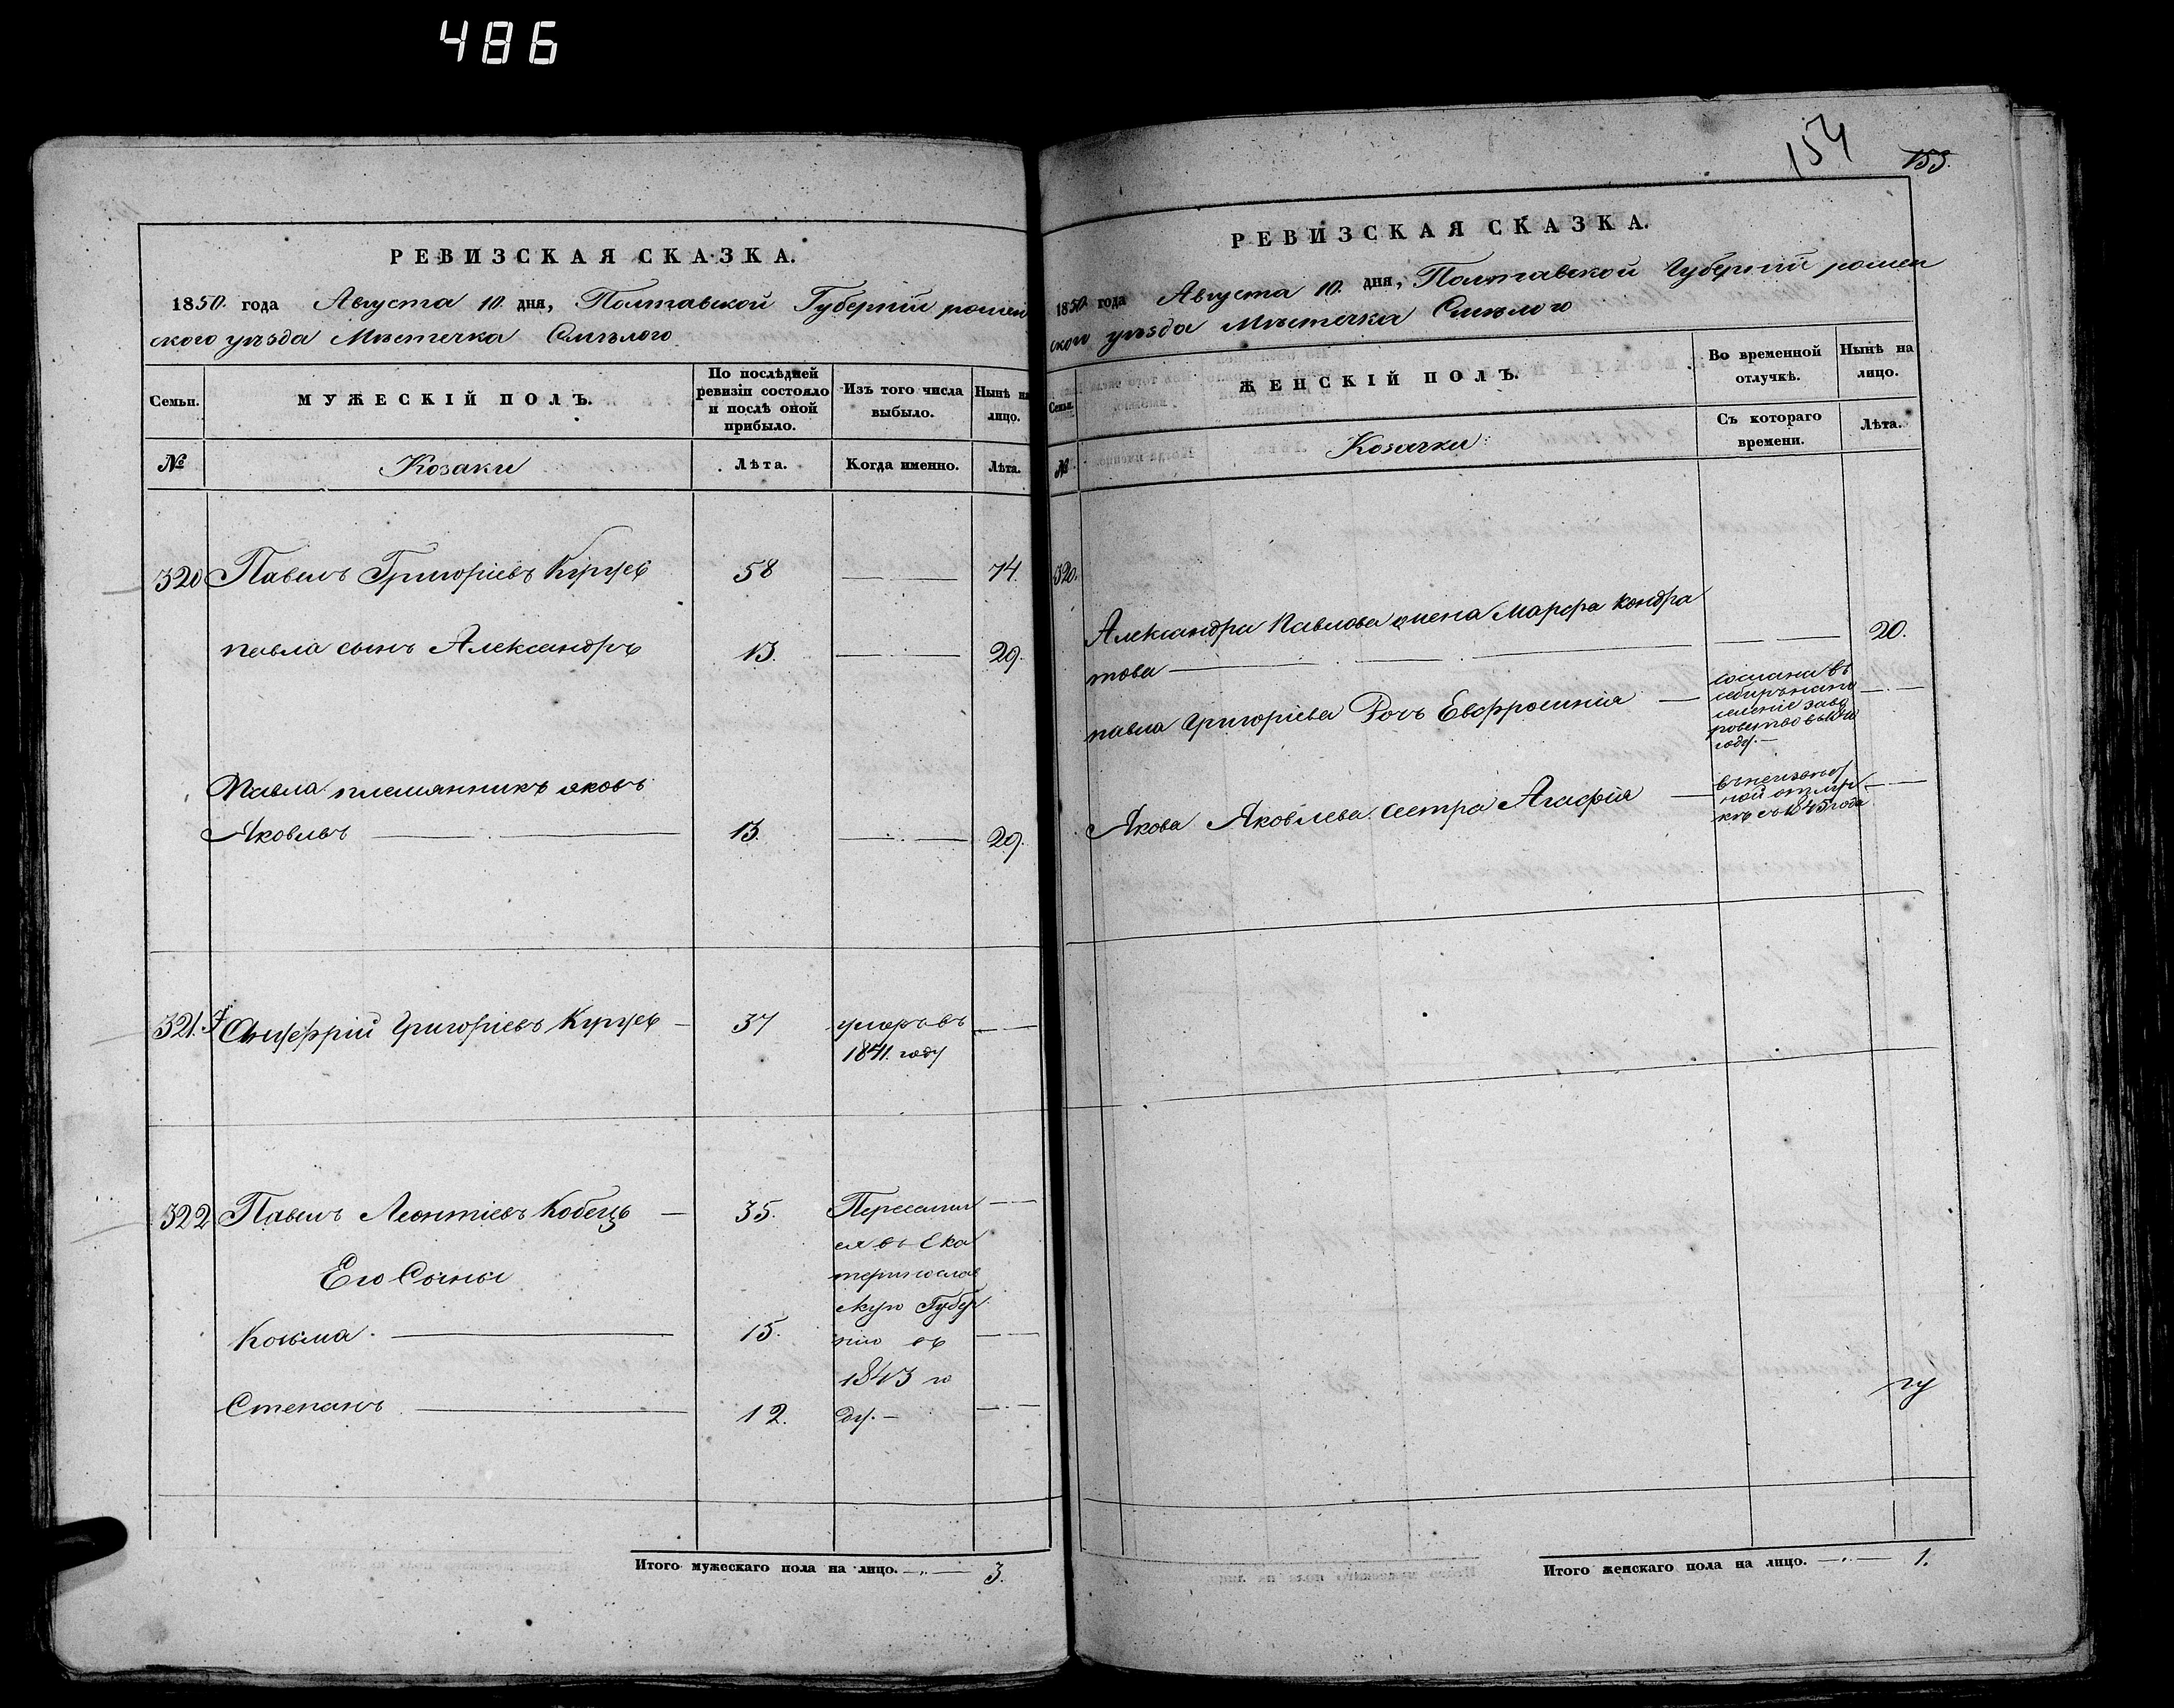 486
РЕВИЗСКАЯ СКАЗКА.
1850. года Августа 10. дня, Полтавской Губерніи ромен
ского уѣзда Мѣстечка Смѣлого
Семьи.
МУЖЕСКІЙ ПОЛЪ.
По послѣдней
ревизіи состояло
и послѣ оной
прибыло.
Изъ того числа
выбыло.
Нынѣ на
лицо.
№
Козаки
Лѣта.
Когда именно.
Лѣта.
320 Павелъ Григоріевъ 58 74.
павла сынъ Александръ 13. 29.
Павла племянникъ яковъ
Яковлевъ 13. 29.
321. Онуфрій Григоріевъ 37 умеръ въ
1841. году
322 Павелъ Леонтіевъ Кобецъ 35. Переселил
ся въ Ека
Его Сыны
теринослав
скую Губер
Козьма 15. нію въ
1843 го
Степанъ 12. ду.
Итого мужескаго пола на лицо. 3.
154
153.
РЕВИЗСКАЯ СКАЗКА.
1850. года Августа 10. дня, Полтавской Губерніи ромен
ского уѣзда Мѣстечка Смѣлого
Семьи.
ЖЕНСКІЙ ПОЛЪ.
Во временной
отлучкѣ.
Нынѣ на
лицо.
Съ котораго
времени.
Лѣта.
№
Козачки
320.
Александра Павлова жена Марфа Кондра
това 20.
павла Григоріева Дочь Евфросинія
сослана въ
году.
Якова Яковлева сестра Агафія
ной отлуч
кѣ съ 1845 года
Итого женскаго пола на лицо. 1.